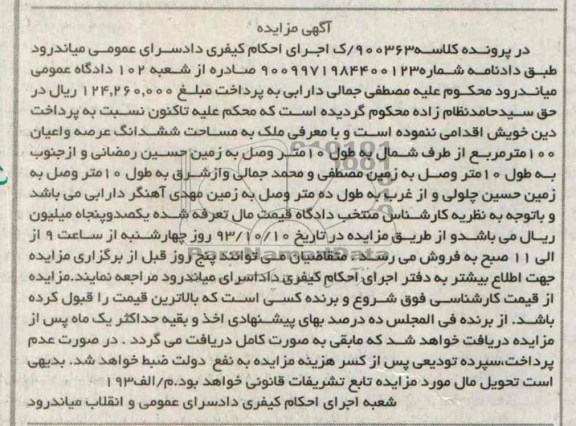 آگهی مزایده
در پرونده کلاسه۹۰۰۳۶۳/ک اجرای احکام کیفری دادسرای عمومی میاندرود
طبق دادنامه شماره۹۰۰۹۹۷۱۹۸۴۴۰۰۱۲۳ صادره از شعبه ۱۰۲ دادگاه عمومی
میاندرود محکوم علیه مصطفی جمالی دارابی به پرداخت مبلغ ۱۲۴,۲۶۰,۰۰۰ ریال در
حق سیدحامدنظام زاده محکوم گردیده است که محکم علیه تاکنون نسبت به پرداخت
دین خویش اقدامی ننموده است و با معرفی ملک به مساحت ششدانگ عرصه واعیان
۱۰۰مترمربع از طرف شمال به طول ۱۰متر وصل به زمین حسین رمضانی و ازجنوب
به طول ۱۰متر وصل به زمین مصطفی و محمد جمالی وازشرق به طول ۱۰متر وصل به
زمین حسین چلولی و از غرب به طول ده متر وصل به زمین مهدی آهنگر دارابی می باشد
و باتوجه به نظریه کارشناس منتخب دادگاه قیمت مال تعرفه شده یکصدوپنجاه میلیون
ریال می باشدو از طریق مزایده در تاریخ ۹۳/۱۰/۱۰ روز چهارشنبه از ساعت ۹ از
الی ۱۱ صبح به فروش می رسد. متقاضیان می توانند پنج روز قبل از برگزاری مزایده
جهت اطلاع بیشتر به دفتر اجرای احکام کیفری دادسرای میاندرود مراجعه نمایند.مزایده
از قیمت کارشناسی فوق شروع و برنده کسی است که بالاترین قیمت را قبول کرده
باشد. از برنده فی المجلس ده درصد بهای پیشنهادی اخذ و بقیه حداکثر یک ماه پس از
مزایده دریافت خواهد شد که مابقی به صورت کامل دریافت می گردد . در صورت عدم
پرداخت،سپرده تودیعی پس از کسر هزینه مزایده به نفع دولت ضبط خواهد شد. بدیهی
است تحویل مال مورد مزایده تابع تشریفات قانونی خواهد بود.م/الف۱۹۳
شعبه اجرای احکام کیفری دادسرای عمومی و انقلاب میاندرود